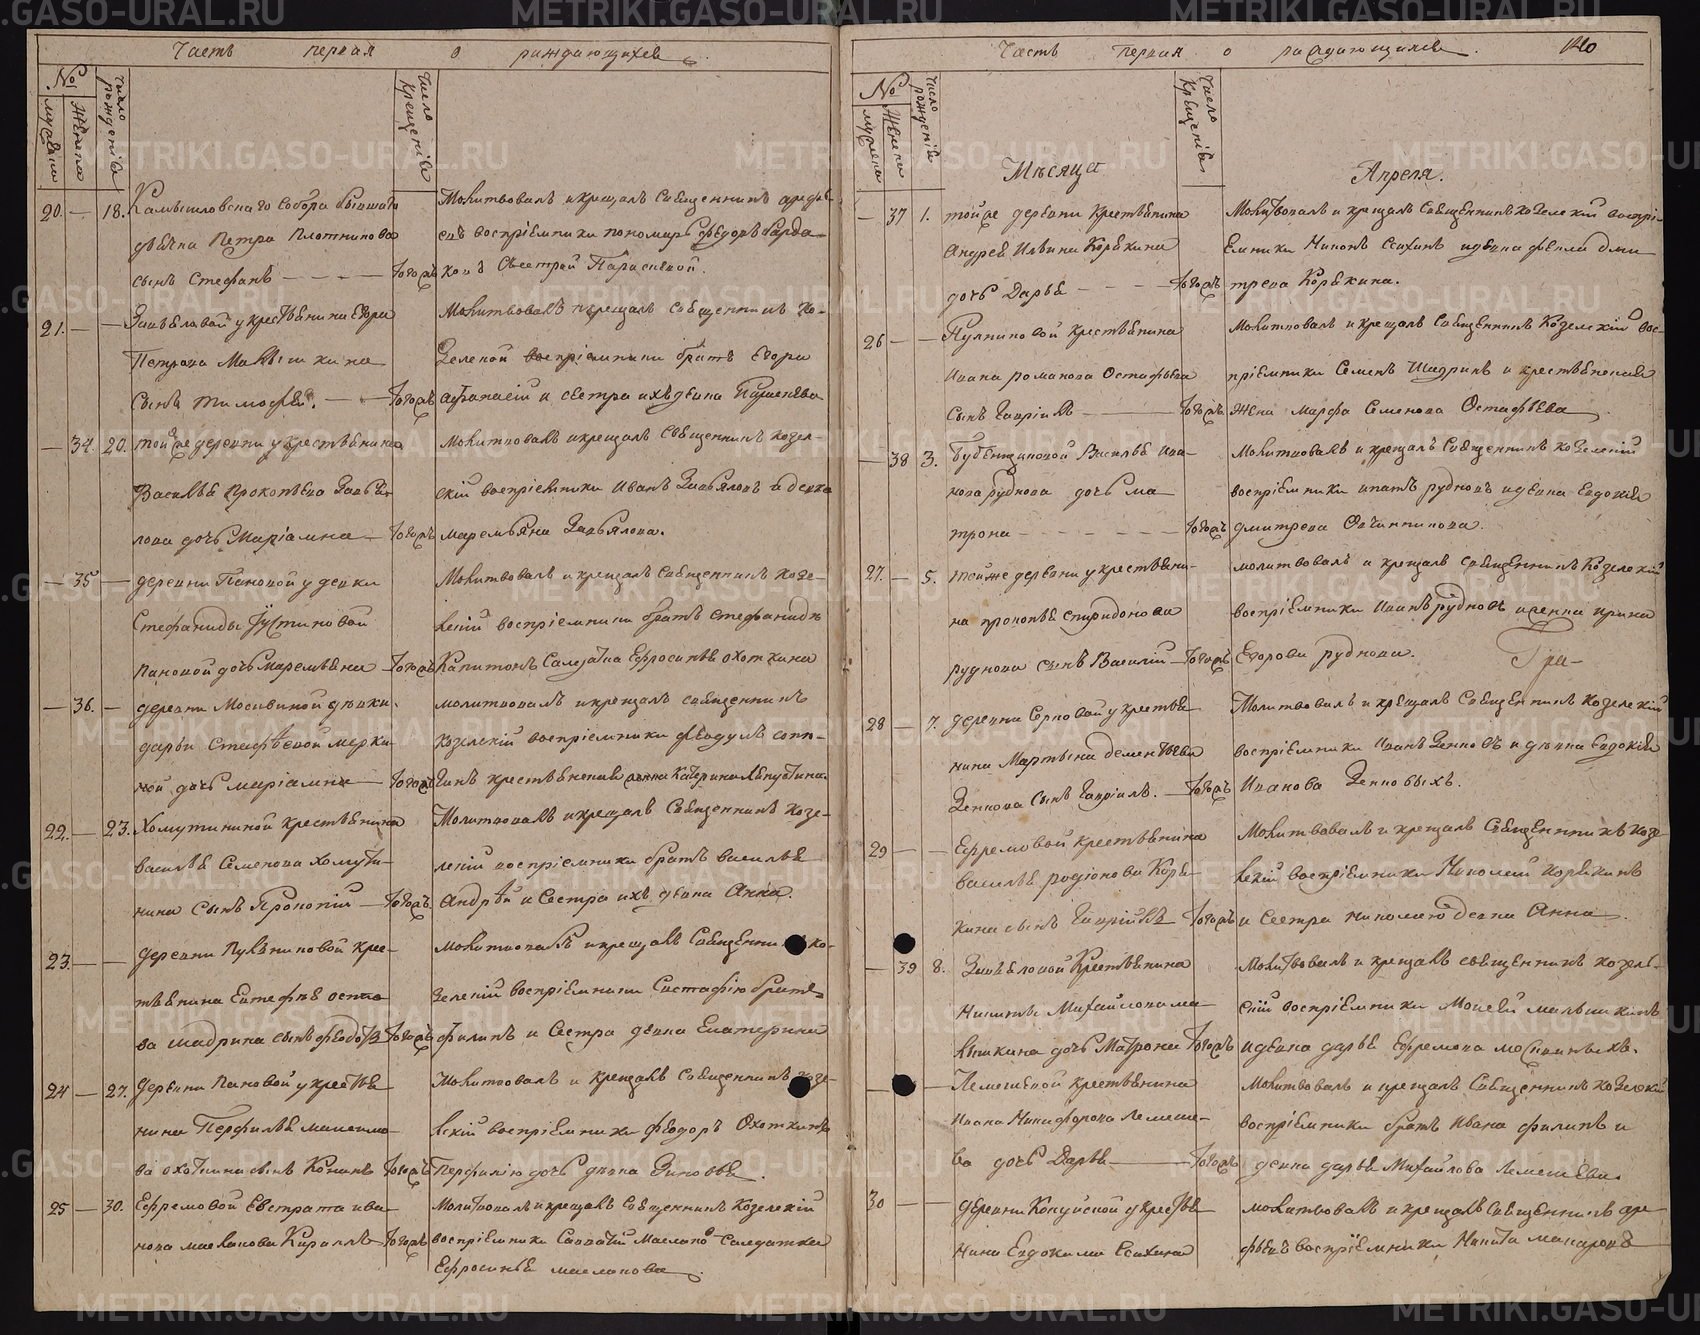 Часть первая о раждающихся
№
мужска
женска
число рожденія
Число крещенія
20. — 18. Камышловскаго Собора бывшаго
дьячка Петра Плотникова
сынъ Стефанъ — — — — тогожъ
Молитвовалъ и крещалъ Священникъ арефь-
евъ воспріемники пономарь Федоръ
Сестрой Параскевой.
21. — — у крестьянина Егора
Петрова Малышкина
Сынъ Тимофей. — — тогожъ
Молитвовалъ и крещалъ Священникъ Ко-
зелской воспріемники братъ Егора
афанасій и сестра ихъ девица Параскева
— 34. 20. той же деревни у крестьянина
Василья Прокопьева Завья-
лова дочь Маріамна — тогожъ
Молитвовалъ и крещалъ Священникъ козел-
скій воспріемники Иванъ Завьяловъ и девка
маремьяна Завьялова.
— 35 — деревни Пановой у девки
Стефаниды Іустиновой
Пановой дочь Маремьяна — тогожъ
Молитвовалъ и крещалъ Священникъ козе-
лскій воспріемники братъ Стефаниды
Капитонъ Салдатка Ефросинья охоткина
— 36. — деревни Мосивиной у девки
дарьи Стафьевой мерки-
ной дочь маріамна — тогожъ
молитвовалъ и крещалъ священникъ
козелскій воспріемники
крестьянская Катерина
22. — 23. Хомутининой крестьянина
василья Семенова Хомути-
нина Сынъ Прокопій — тогожъ
Молитвовалъ и крещалъ Священникъ козе-
лскій воспріемники братъ василья
Андрей и Сестра ихъ девка Анна.
23. — — деревни Пульниковой крес-
тьянина Евстафья
ва Шадрина сынъ Федотъ тогожъ
Молитвовалъ и крещалъ Священникъ ко-
зелскій воспріемники Евстафію братъ
филипъ и Сестра девка Екатерина
24 — 27. Деревни Пановой у крестья
нина Перфилья
ва охоткина сынъ Кононъ тогожъ
Молитвовалъ и крещалъ Священникъ козе-
лскій воспріемники Федоръ Охоткинъ
Перфилію дочь девка Зиновья.
25 — 30. Ефремовой Евстрата ива-
нова масланова Кирилъ тогожъ
Молитвовалъ и крещалъ Священникъ Козелскій
воспріемники Савватій Маслановъ Салдатка
Ефросинья масланова.
Часть первая о раждающихся. 120
№
мужска
женска
число рожденія
Число Крещенія
Мѣсяца Апреля.
— 37 1. той же деревни Крестьянина
Андрея Ильина Корекина
дочь Дарья — — — — тогожъ
Молитвовалъ и крещалъ Священникъ козелскій воспрі-
емники Никонъ Есихинъ и девка Фекла дми
трева Корекина.
26 — — Пулниковой крестьянина
Ивана романова Остафьева
Сынъ Гавріилъ — тогожъ
Молитвовалъ и крещалъ Священникъ Козелскій вос-
пріемники Семенъ Шадринъ и крестьянская
жена Марфа Семенова Остафьева
— 38 3. Бубенщиковой Василья ива-
нова руднова дочь ма
трона — — — — тогожъ
Молитвовалъ и крещалъ Священникъ козелскій
воспріемники игнатъ рудновъ и девка Евдокия
дмитрева Овчинникова.
27. — 5. той же деревни у крестьяни-
на прокопья спиридонова
руднова сынъ Василій — тогожъ
молитвовалъ и крещалъ священникъ Козелскій
воспріемники Иванъ рудновъ и девка ирина
Егорова руднова.
28 — 7. деревни Серковой у крестья
нина Мартына дементьева
Зенкова Сынъ Гавріилъ. — тогожъ
Молитвовалъ и крещалъ Священникъ Козелскій
воспріемники Иванъ Зенковъ и девка Евдокия
Иванова Зенковыхъ.
29 — — Ефремовой крестьянина
василья родіонова Коре-
кина сынъ Гавріилъ тогожъ
Молитвовалъ и крещалъ Священникъ козе-
лскій воспріемники Николай Корекинъ
и Сестра николаю девка Анна.
— 39 8. Крестьянина
Никиты Михайлова ма-
лышкина дочь Матрона тогожъ
Молитвовалъ и крещалъ священникъ козель-
скій воспріемники Моисей малышкинъ
и девка дарья Ефремова
— Лемешевой крестьянина
Ивана Никифорова Лемеше-
ва дочь Дарья — тогожъ
Молитвовалъ и крещалъ Священникъ козелскій
воспріемники братъ Ивана филипъ и
девка дарья Михайлова Лемешева.
30 — — деревни Копуйской у крестья
нина Евдокима Есихина
молитвовалъ и крещалъ Священникъ аре
фьевъ воспріемники Никита макаровъ
METRIKI.GASO-URAL.RU